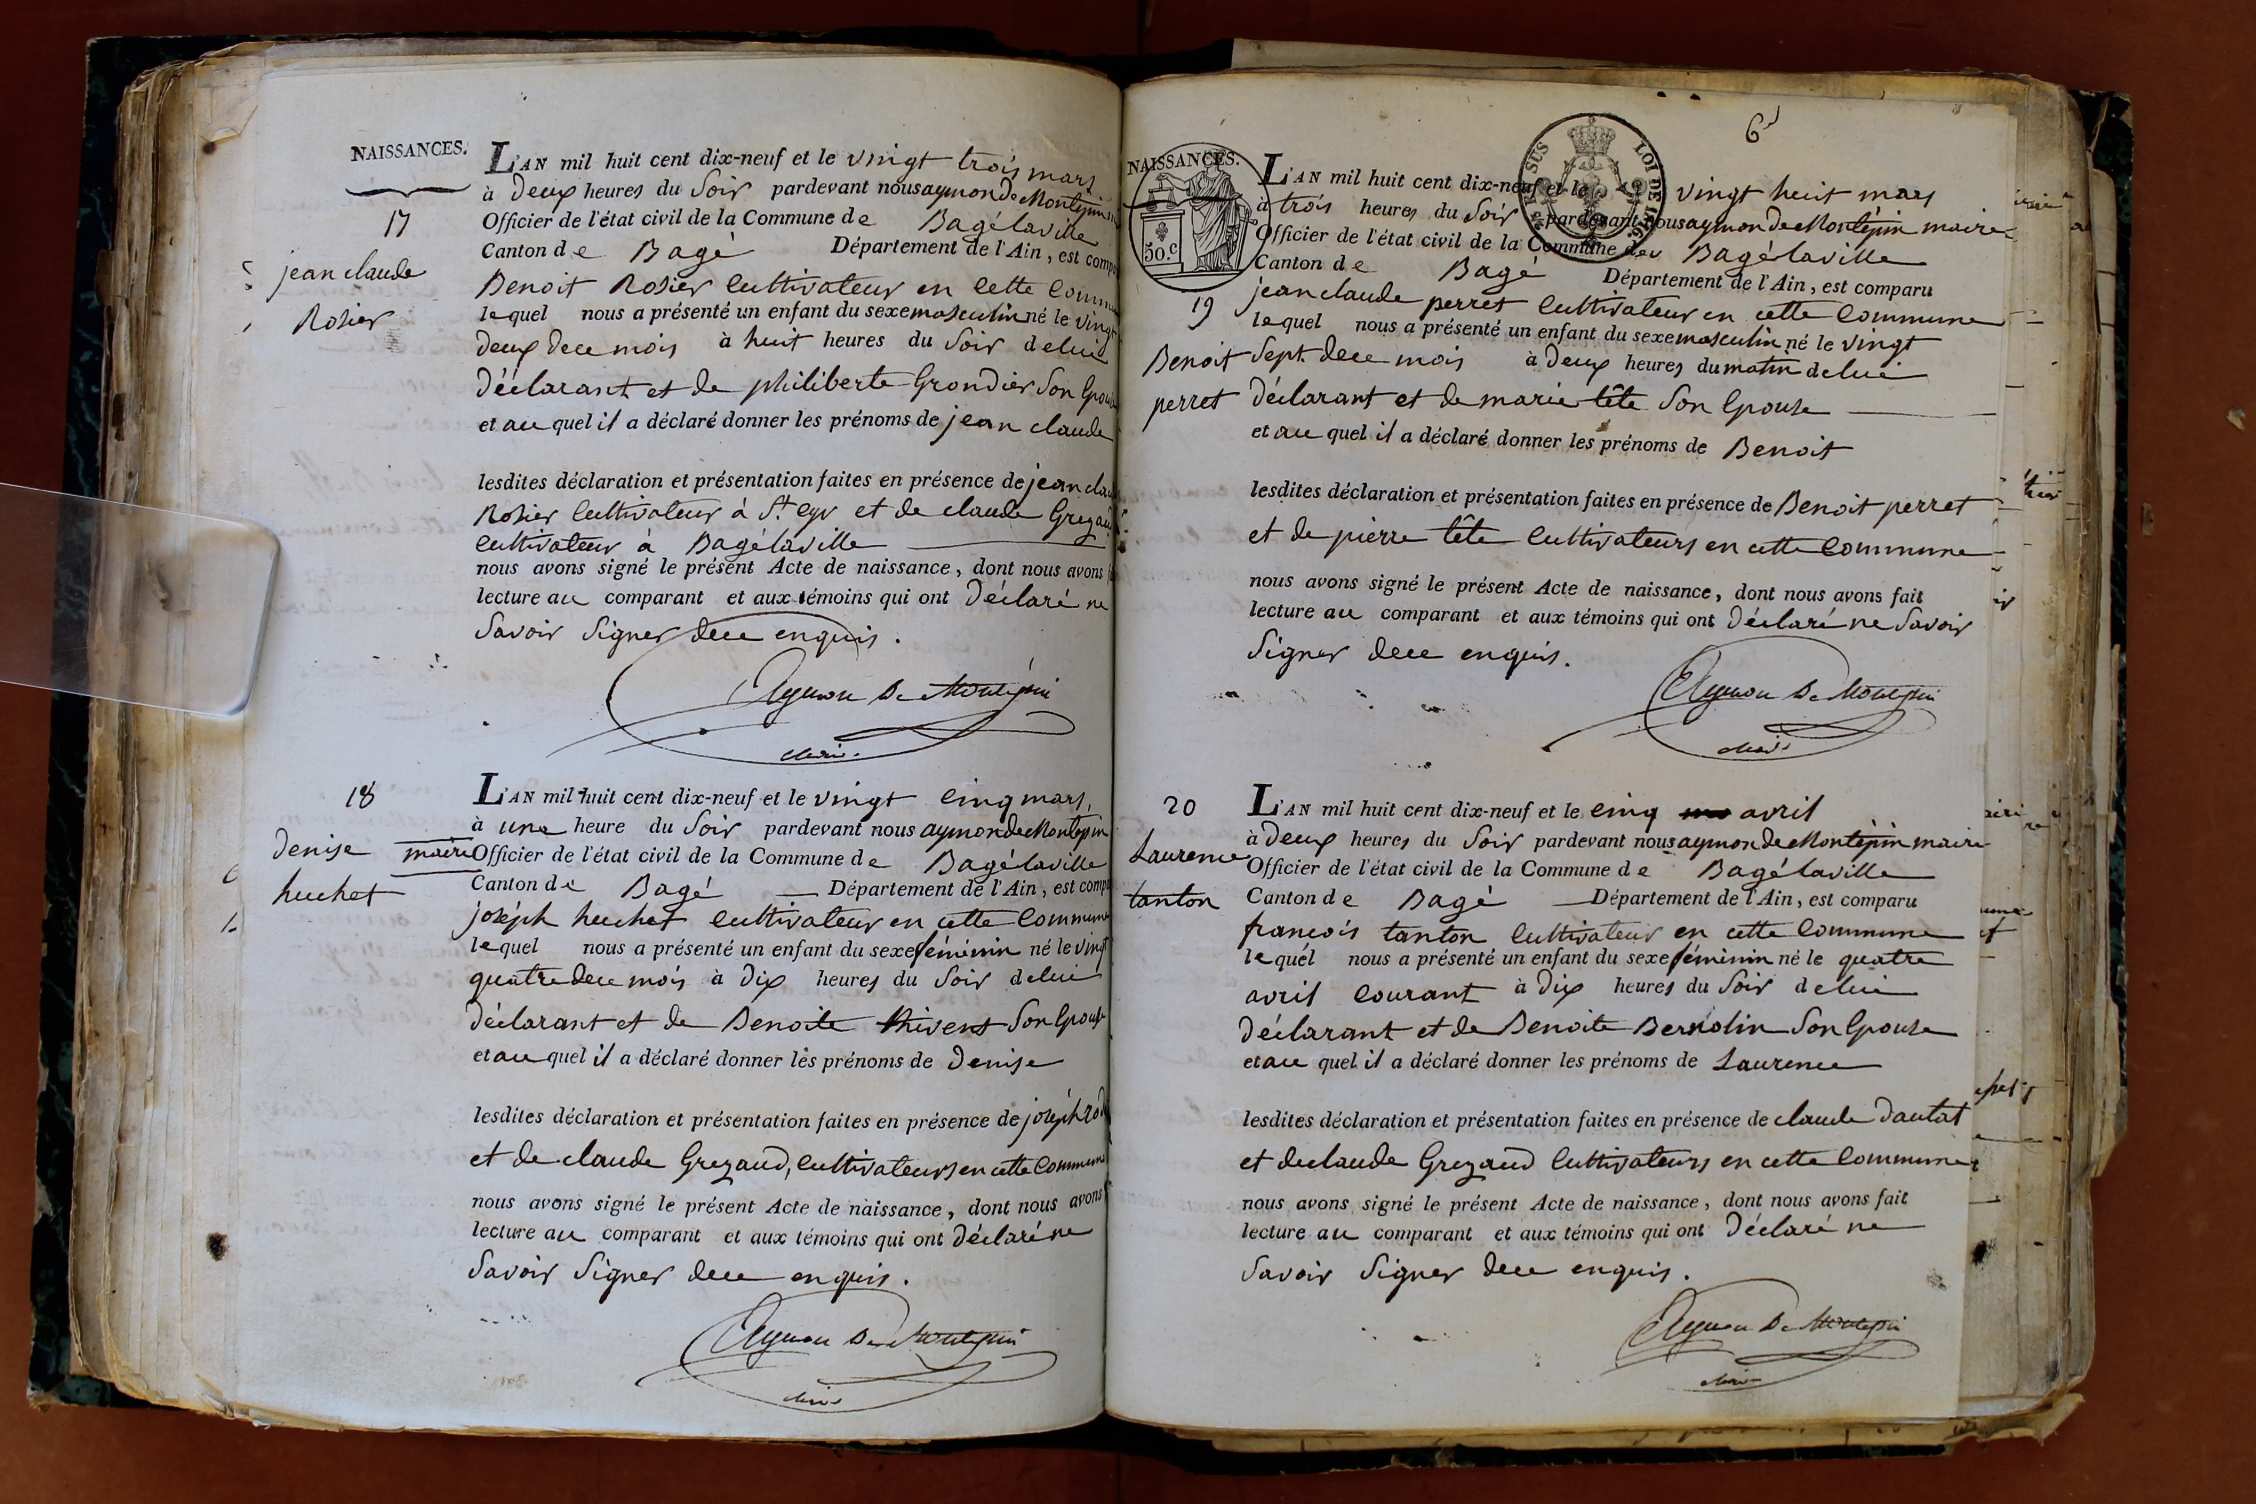 NAISSANCES.
17
jean claude
Rosier
L'AN mil huit cent dix-neuf et le vingt trois mars
à deux heures du Soir pardevant nous aymon de Montépin
Officier de l'état civil de la Commune de Bagélaville
Canton de Bagé Département de l'Ain, est comparu
Benoit Rosier cultivateur en cette commune
lequel nous a présenté un enfant du sexe masculin né le vingt
deux dece mois à huit heures du Soir de lui
déclarant et de philiberte Grondier Son Epouse
et au quel il a déclaré donner les prénoms de jean claude
lesdites déclaration et présentation faites en présence de jean claude
Rosier Cultivateur à St. Cyr et de claude Grezaud
cultivateur à Bagélaville
nous avons signé le présent Acte de naissance, dont nous avons
lecture au comparant et aux témoins qui ont déclaré ne
Savoir Signer dece enquis.
Aymon De Montépin
Maire
18
Denise
huchet
L'AN mil huit cent dix-neuf et le vingt cinq mars,
à une heure du Soir pardevant nous aymon de Montépin
maire Officier de l'état civil de la Commune de Bagélaville
Canton de Bagé Département de l'Ain, est comparu
joséph huchet cultivateur en cette Commune
lequel nous a présenté un enfant du sexe féminin né le vingt
quatre dece mois à dix heures du Soir de lui
déclarant et de Benoite thivent Son Epouse
et au quel il a déclaré donner les prénoms de Denise
lesdites déclaration et présentation faites en présence de joséph
et de claude Grezaud, Cultivateurs en cette Commune
nous avons signé le présent Acte de naissance, dont nous avons
lecture au comparant et aux témoins qui ont déclaré ne
Savoir Signer dece enquis.
Aymon De Montépin
Maire
6
NAISSANCES.
50.c
SUS
LOI DE
19
Benoit
perret
L'AN mil huit cent dix-neuf et le vingt huit mars
à trois heures du Soir pardevant nous aymon de Montépin maire
Officier de l'état civil de la Commune de Bagélaville
Canton de Bagé Département de l'Ain, est comparu
jean claude perret Cultivateur en cette Commune
lequel nous a présenté un enfant du sexe masculin né le vingt
Sept dece mois à deux heures du matin de lui
déclarant et de marie tête Son Epouse
et au quel il a déclaré donner les prénoms de Benoit
lesdites déclaration et présentation faites en présence de Benoit perret
et de pierre tête Cultivateurs en cette Commune
nous avons signé le présent Acte de naissance, dont nous avons fait
lecture au comparant et aux témoins qui ont déclaré ne Savoir
Signer dece enquis.
Aymon De Montépin
Maire
20
Laurence
tanton
L'AN mil huit cent dix-neuf et le cinq avril
à deux heures du Soir pardevant nous aymon de Montépin maire
Officier de l'état civil de la Commune de Bagélaville
Canton de Bagé Département de l'Ain, est comparu
francois tanton Cultivateur en cette Commune
lequel nous a présenté un enfant du sexe féminin né le quatre
avril Courant à dix heures du Soir de lui
déclarant et de Benoite Bernolin Son Epouse
et au quel il a déclaré donner les prénoms de Laurence
lesdites déclaration et présentation faites en présence de claude dautat
et de claude Grezaud Cultivateurs en cette Commune
nous avons signé le présent Acte de naissance, dont nous avons fait
lecture au comparant et aux témoins qui ont déclaré ne
Savoir Signer dece enquis.
Aymon De Montépin
Maire